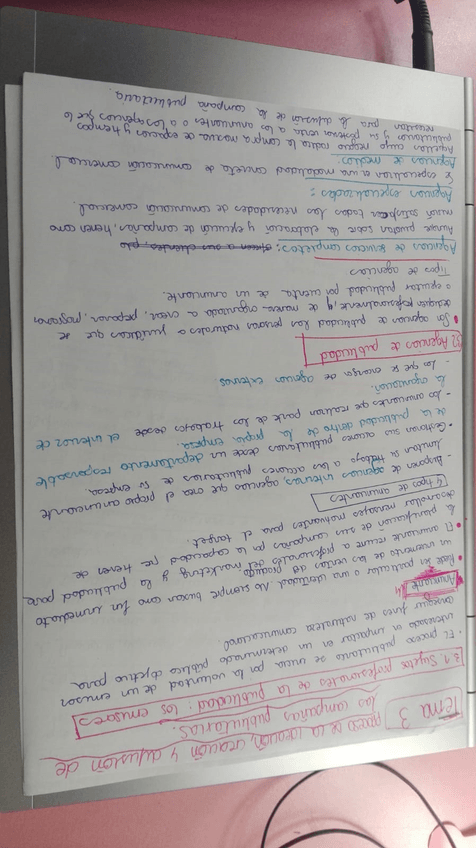 Tema 3
PROCESO DE LA IDEACIÓN, CREACIÓN Y DIFUSIÓN DE
las campañas publicitarias.
3.1. Sujetos profesionales de la publicidad: los emisores
• El proceso publicitario se inicia por la voluntad de un emisor
interesado en impactar en un determinado público objetivo para
conseguir fines de naturaleza comunicacional.
Anunciante
• Puede ser particular o una identidad. No siempre buscan como fin inmediato
un incremento de las ventas del producto
• El anunciante recurre a profesionales del marketing y la publicidad para
la planificación de sus campañas por la capacidad que tienen de
desarrollar mensajes motivantes para el target.
4 tipos de anunciantes
- Grupos de agencias internas, agencias que crea el propio anunciante
su trabajo a las acciones publicitarias de su empresa.
• Gestionan sus acciones publicitarias desde un departamento responsable
de la publicidad dentro de la propia empresa.
- Los anunciantes que realizan parte de los trabajos desde el interior de
la organización.
- Los que se encarga de agencias externas
3.2 Agencias de publicidad
• Son agencias de publicidad las personas naturales o jurídicas que se
dediquen profesionalmente, y de manera organizada a crear, preparar, programar
o ejecutar publicidad por cuenta de un anunciante.
Tipos de agencias
Agencias de servicios completos: ofrecen a sus clientes
Aunque giran sobre la elaboración y ejecución de campañas, tienen como
misión satisfacer todas las necesidades de comunicación comercial.
Agencias especializadas:
Se especializan en una modalidad concreta de comunicación comercial
Agencias de medios:
Aquellas cuyo negocio radica la compra masiva de espacios y tiempos
publicitarios y su posterior venta a los anunciantes o a las agencias que lo
necesitan para la difusión de la campaña publicitaria.